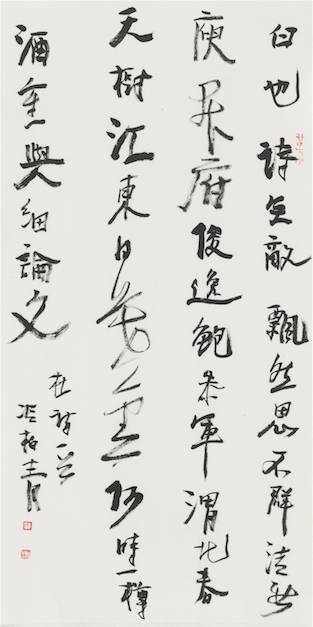 白也詩無敵飄然思不群清新
庾開府俊逸鮑參軍渭北春
天樹江東日暮雲何時一樽
酒重與細論文
杜詩一首